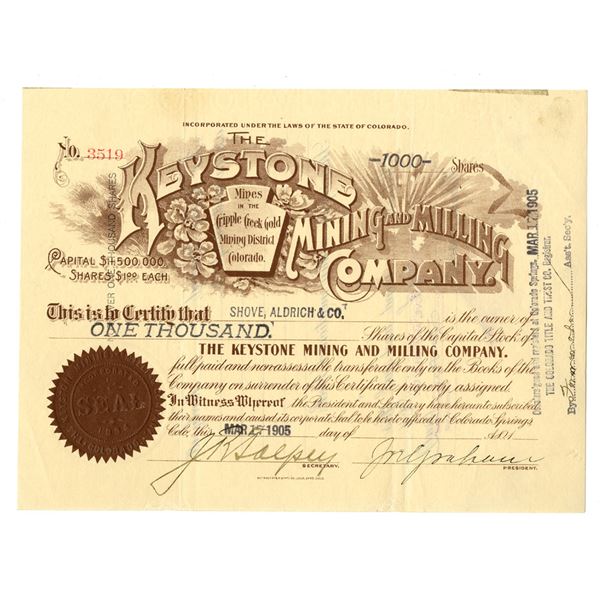 INCORPORATED UNDER THE LAWS OF THE STATE OF COLORADO.
No. 3519
-1000- Shares
THE
KEYSTONE
MINING AND MILLING
COMPANY.
Mines
IN THE
Cripple Creek Gold
Mining District
Colorado.
CAPITAL $1,500,000.
SHARES $1.00 EACH
This is to Certify that SHOVE, ALDRICH & CO. is the owner of
ONE THOUSAND. Shares of the Capital Stock of
THE KEYSTONE MINING AND MILLING COMPANY.
full paid and nonassessable transferable only on the Books of the
Company on surrender of this Certificate properly assigned
In Witness Whereof the President and Secretary have hereunto subscribed
their names and caused its corporate Seal to be hereto affixed at Colorado Springs
Colo, this MAR 15 1905 day of A.D. 1
SECRETARY.
PRESIDENT.
SEAL
Countersigned and registered at Colorado Springs, MAR 17 1905
THE COLORADO TITLE AND TRUST CO. Registrar.
By Ass't. Sec'y.
THOUSAND SHARES